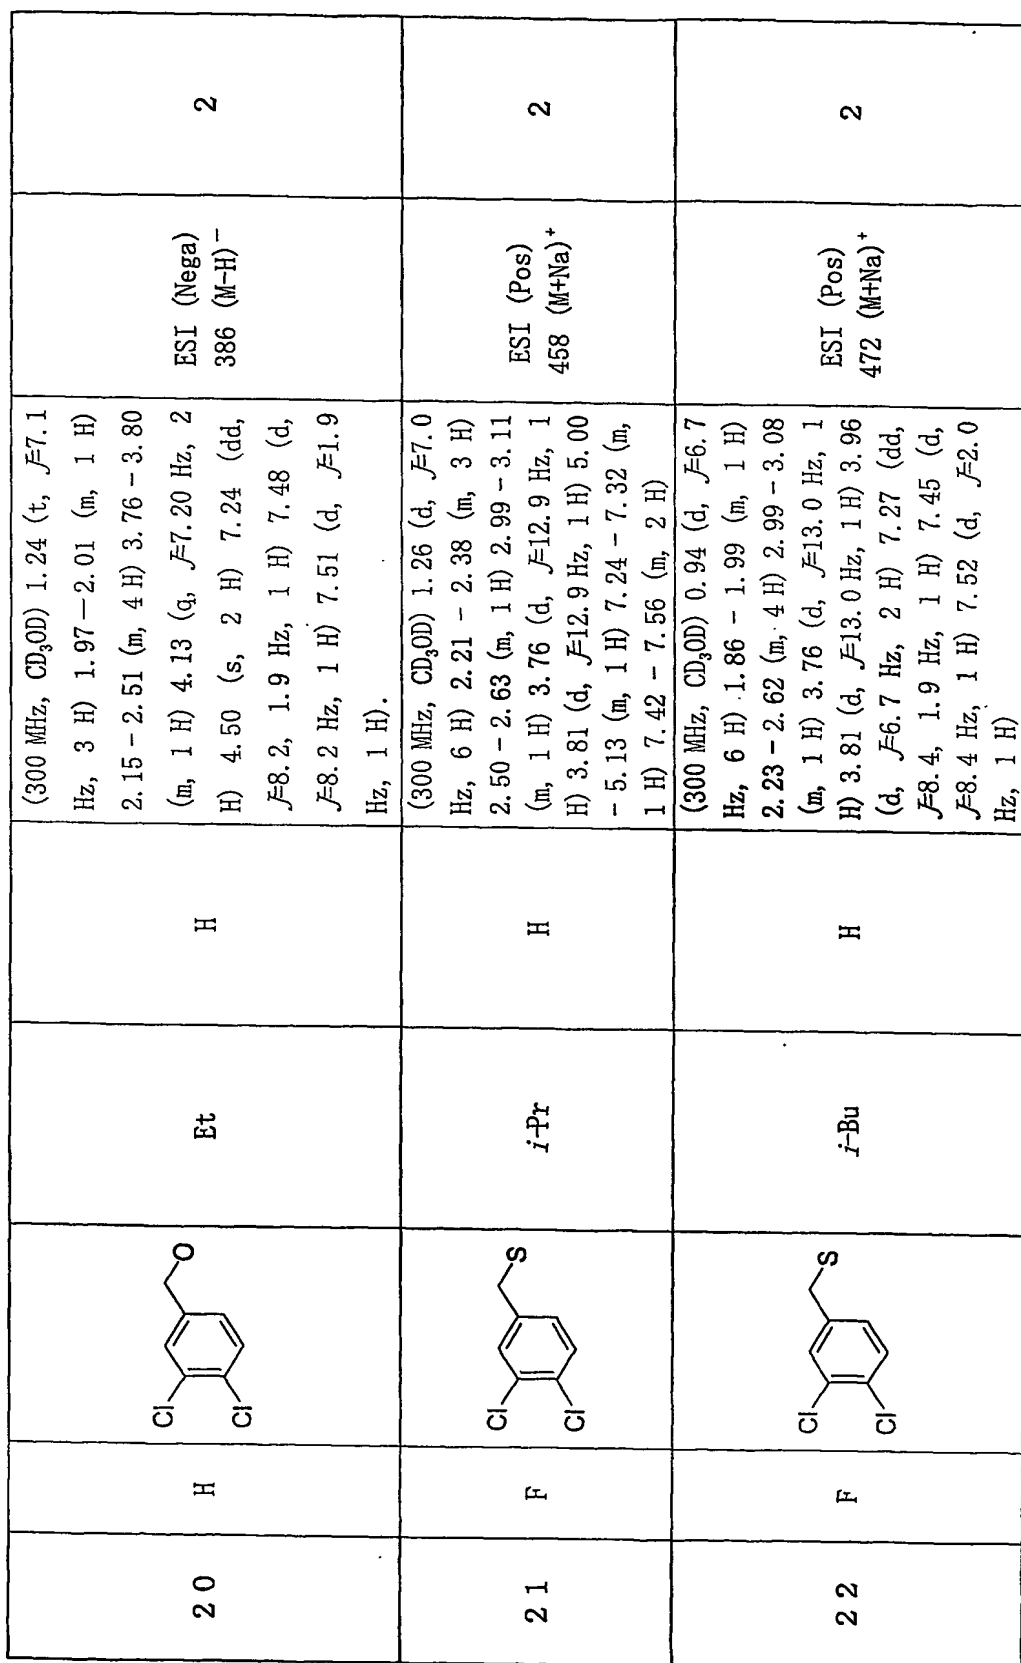 20
H
Cl
Cl
O
Et
H
(300 MHz, CD₃OD) 1.24 (t, J=7.1
Hz, 3 H) 1.97-2.01 (m, 1 H)
2.15 - 2.51 (m, 4 H) 3.76 - 3.80
(m, 1 H) 4.13 (q, J=7.20 Hz, 2
H) 4.50 (s, 2 H) 7.24 (dd,
J=8.2, 1.9 Hz, 1 H) 7.48 (d,
J=8.2 Hz, 1 H) 7.51 (d, J=1.9
Hz, 1 H).
ESI (Nega)
386 (M-H)⁻
2
21
F
Cl
Cl
S
i-Pr
H
(300 MHz, CD₃OD) 1.26 (d, J=7.0
Hz, 6 H) 2.21 - 2.38 (m, 3 H)
2.50 - 2.63 (m, 1 H) 2.99 - 3.11
(m, 1 H) 3.76 (d, J=12.9 Hz, 1
H) 3.81 (d, J=12.9 Hz, 1 H) 5.00
- 5.13 (m, 1 H) 7.24 - 7.32 (m,
1 H) 7.42 - 7.56 (m, 2 H)
ESI (Pos)
458 (M+Na)⁺
2
22
F
Cl
Cl
S
i-Bu
H
(300 MHz, CD₃OD) 0.94 (d, J=6.7
Hz, 6 H) 1.86 - 1.99 (m, 1 H)
2.23 - 2.62 (m, 4 H) 2.99 - 3.08
(m, 1 H) 3.76 (d, J=13.0 Hz, 1
H) 3.81 (d, J=13.0 Hz, 1 H) 3.96
(d, J=6.7 Hz, 2 H) 7.27 (dd,
J=8.4, 1.9 Hz, 1 H) 7.45 (d,
J=8.4 Hz, 1 H) 7.52 (d, J=2.0
Hz, 1 H)
ESI (Pos)
472 (M+Na)⁺
2